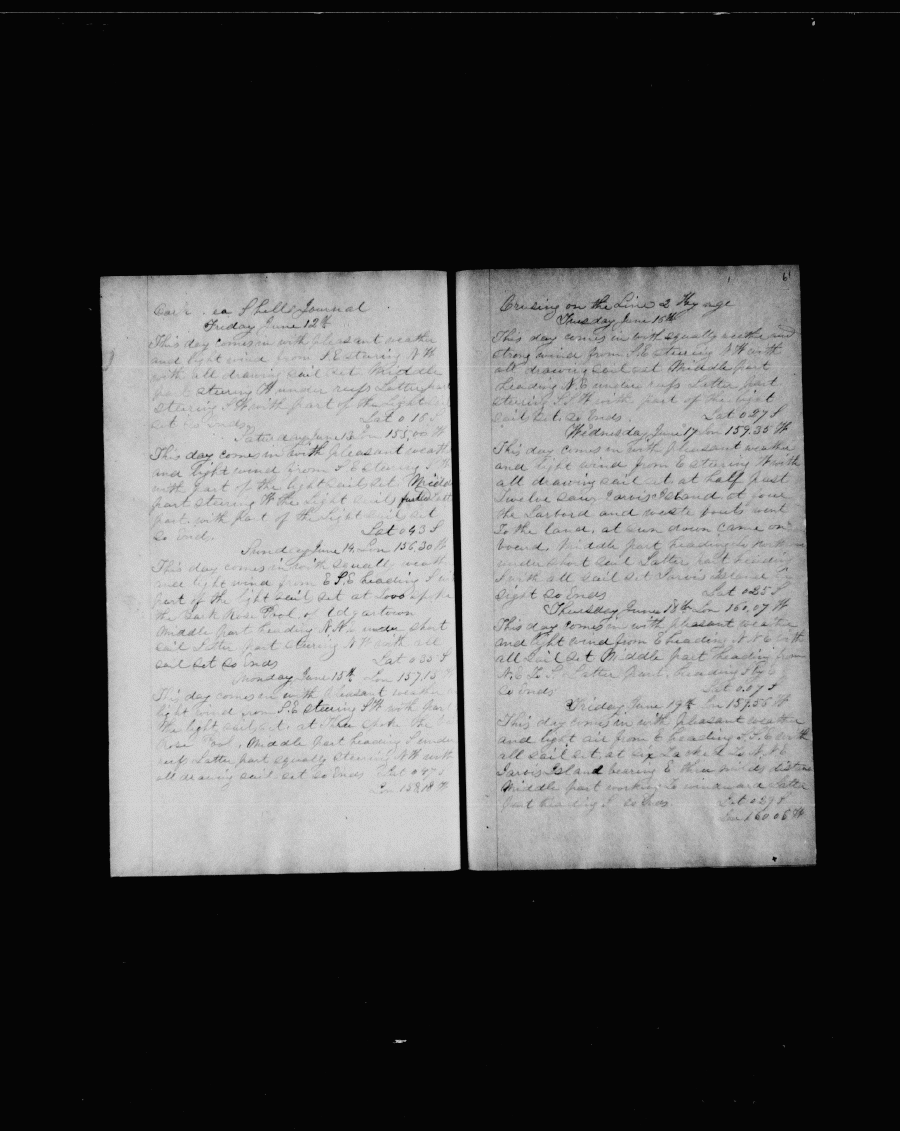 Shells Journal
Friday June 12th
This day comes in with pleasant weather
and light wind from S.E stearing N W
with all drawing sail set Middle
part stearing W under reefs Latter part
stearing S W with part of the Light sail
set So Ends Lat 0 16 S
Saturday June 13 Lon 155,00 W
This day comes in with pleasant weather
and light wind from S E stearing S W
with part of the light sails set Middle
part stearing W the Light sails furled Latter
part with part of the Light sail set
So Ends. Lat 0 43 S
Sunday June 14, Lon 156,30 W
This day comes in with squally weather
and light wind from E S.E heading S with
part of the light sail set at
the Bark Rose Pool, of Edgartown
Middle part heading N.N. under short
sail Latter part stearing N W with all
sail set So Ends Lat 0 35 S
Monday June 15th Lon 157,15 W
This day comes in with pleasant weather
light wind from S.E stearing S W with part
the light sail set, at spoke the
Rose Pool, Middle part heading S under
reefs Latter part squally stearing N W with
all drawing sail set So Ends Lat 0 47 S
Lon 158,18 W
6
Crusing on the Line 2 Voyage
Tuesday June 16th
This day comes in with squally weather and
strong wind from S.E stearing N W with
all drawing sail set Middle part
heading N.E under reefs Latter part
stearing S W with part of the light
sail set. So Ends Lat 0 27 S
Wednesday June 17 Lon 159.35 W
This day comes in with pleasant weather
and light wind from E stearing W with
all drawing sail set at half past
twelve saw Jarvis Island at four
the Larbord and waste boats went
To the land, at sun down came on
board, Middle part heading
under short sail Latter part heading
S with all sail set Jarvis Island in
sight So Ends Lat 0 25 S
Thursday June 18th Lon 160,07 W
This day comes in with pleasant weather
and light wind from E heading N.N.E with
all Sail set Middle part heading from
N.E To S. Latter part, heading S by E
So Ends Lat 0.07 S
Friday June 19th Lon 159.56 W
This day comes in with pleasant weather
and light air from E heading S,S.E with
all sail set at six Tacked To N.N.E
Jarvis Island bearing E three miles distance
Middle part working To windward Latter
part heading S So Ends Lat 0 27 S
Lon 160.06 W